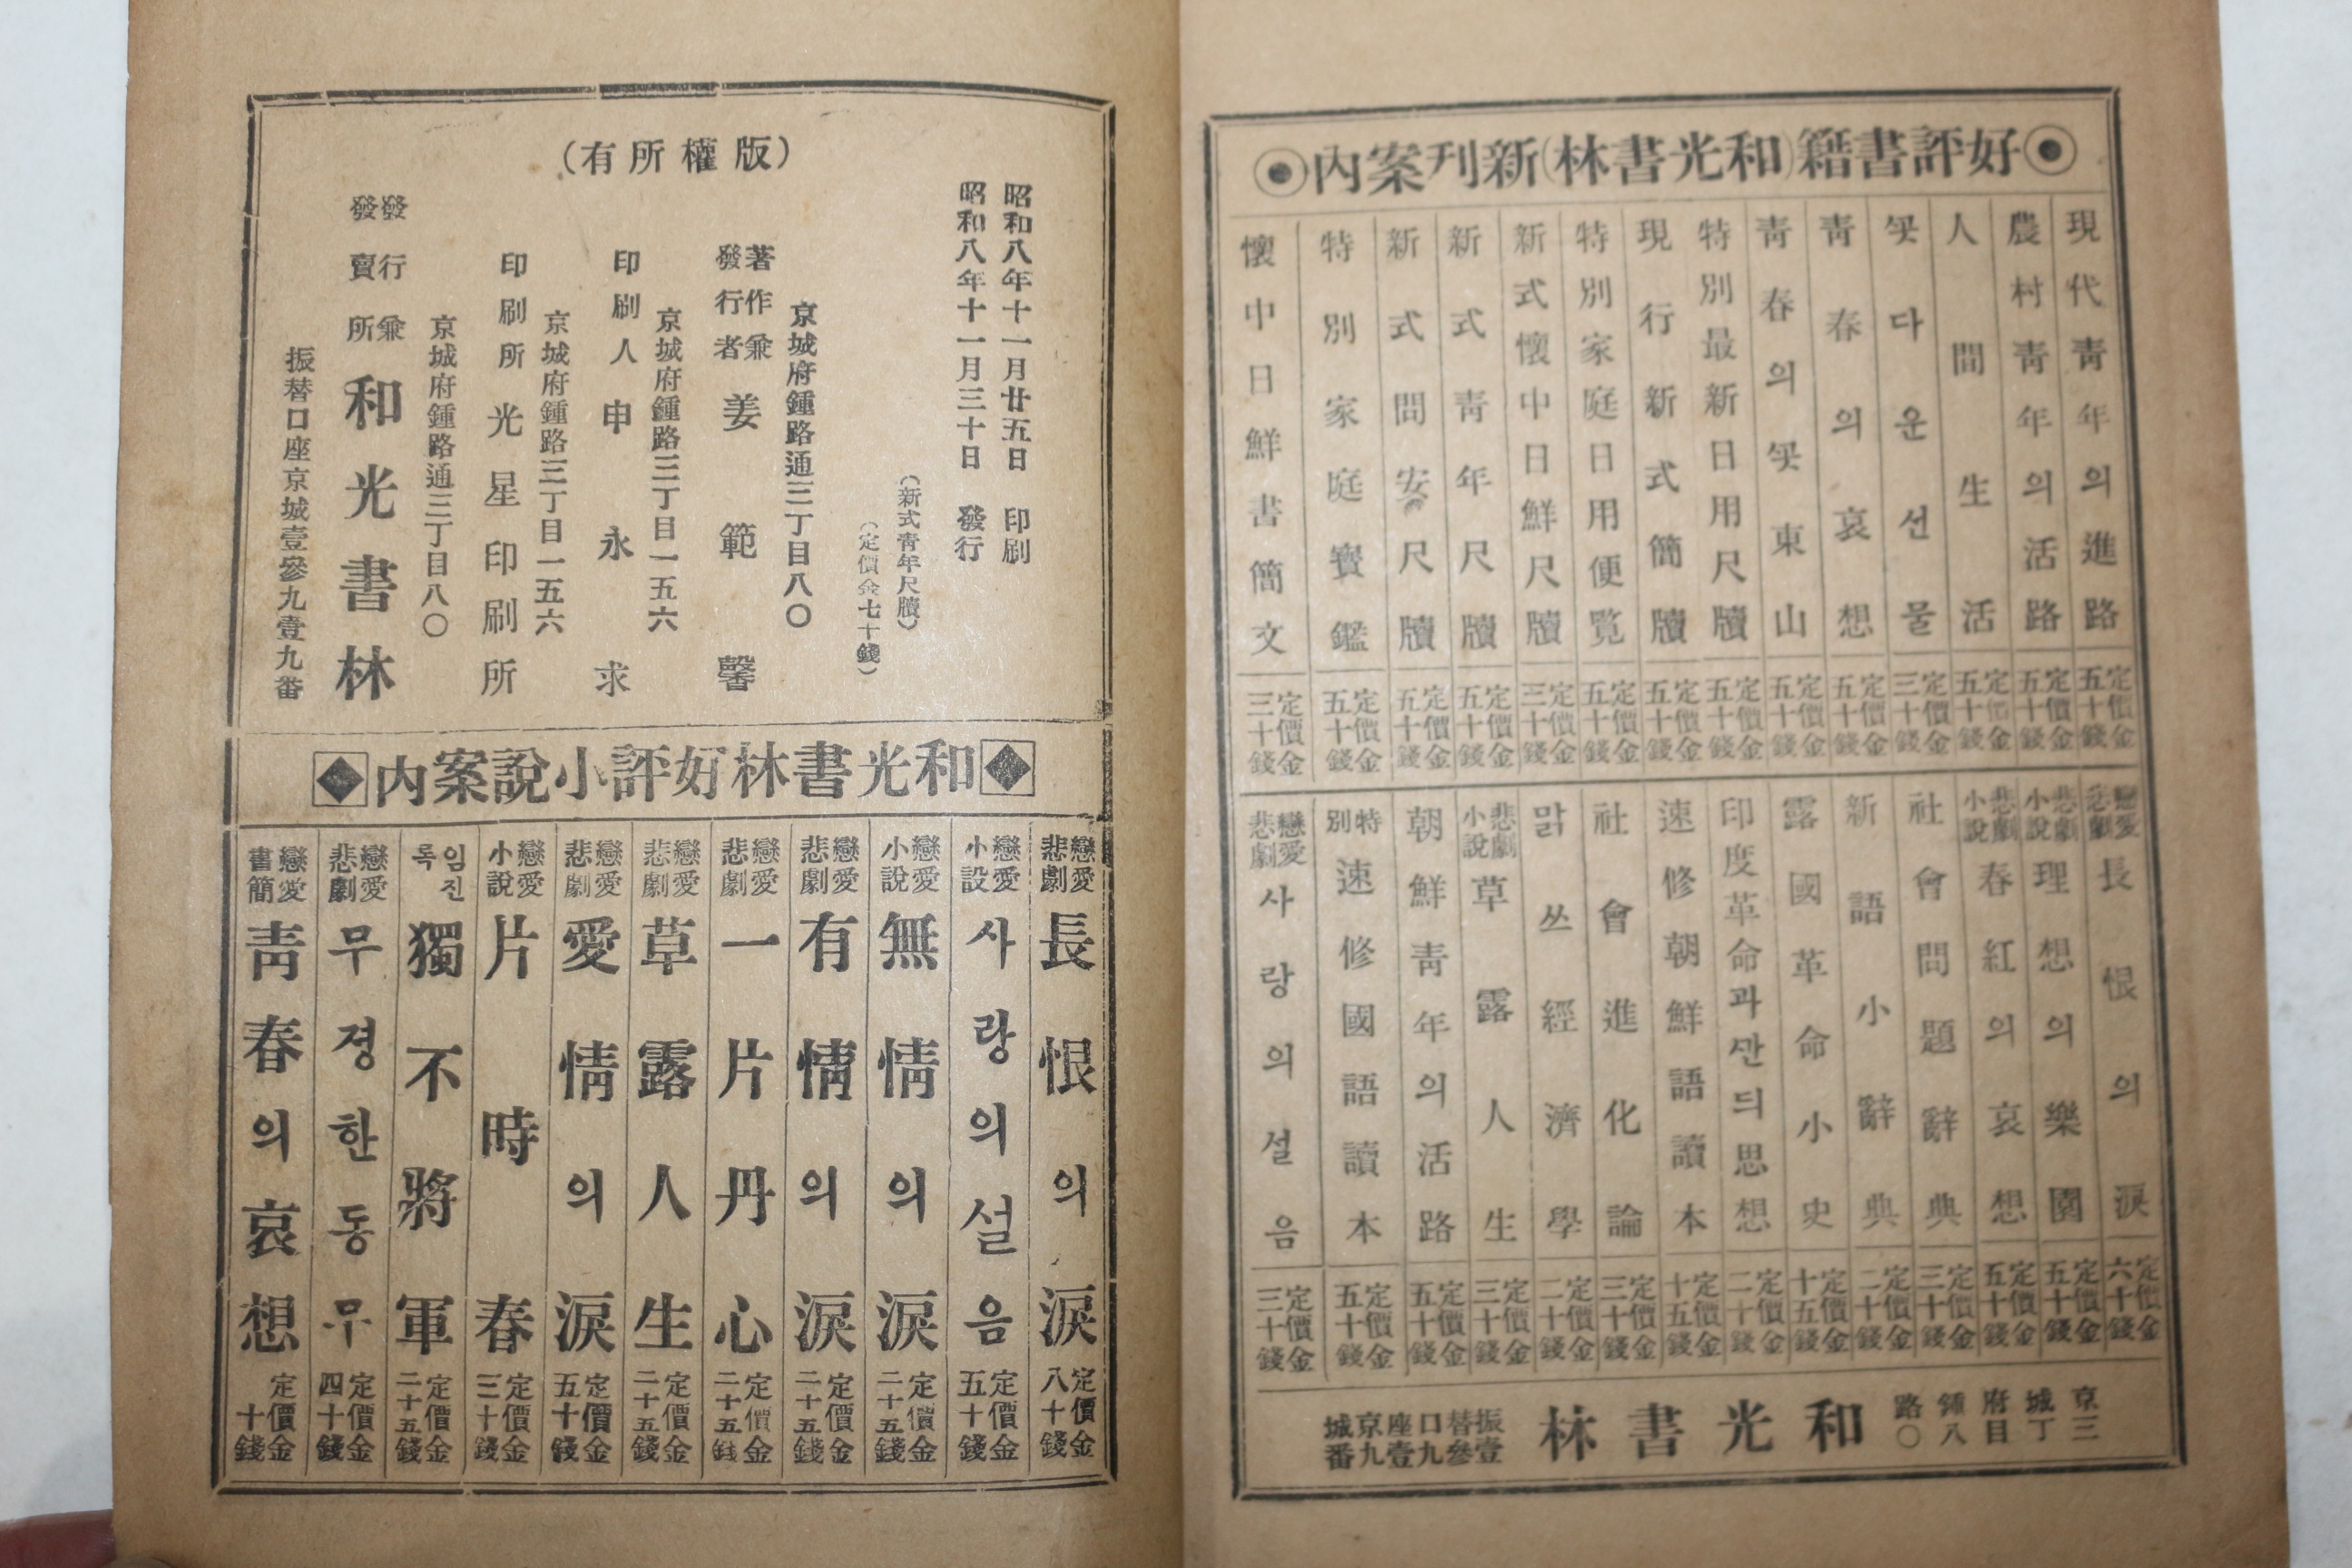 ◉好評書籍(和光書林)新刊案內◉
現代靑年의進路 定價金五十錢
農村靑年의活路 定價金五十錢
人間生活 定價金五十錢
ᄭᅩᆺ다운선물 定價金三十錢
靑春의哀想 定價金五十錢
靑春의ᄭᅩᆺ東山 定價金五十錢
特別最新日用尺牘 定價金五十錢
現行新式簡牘 定價金五十錢
特別家庭日用便覧 定價金五十錢
新式懷中日鮮尺牘 定價金三十錢
新式靑年尺牘 定價金五十錢
新式問安尺牘 定價金五十錢
特別家庭寶鑑 定價金五十錢
懷中日鮮書簡文 定價金三十錢
戀愛悲劇 長恨의淚 定價金六十錢
悲劇小說 理想의樂園 定價金五十錢
悲劇小說 春紅의哀想 定價金五十錢
社會問題辭典 定價金三十錢
新語小辭典 定價金二十錢
露國革命小史 定價金十五錢
印度革命과ᄭᅡᆫ듸思想 定價金二十錢
速修朝鮮語讀本 定價金十五錢
社會進化論 定價金三十錢
맑쓰經濟學 定價金二十錢
悲劇小說 草露人生 定價金三十錢
朝鮮靑年의活路 定價金五十錢
特別 速修國語讀本 定價金五十錢
戀愛悲劇 사랑의설음 定價金三十錢
京城府鍾路三丁目八〇
和光書林
振替口座京城壹參九壹九番
(版權所有)
昭和八年十一月廿五日 印刷
昭和八年十一月三十日 發行
(新式靑年尺牘)
(定價金七十錢)
京城府鍾路通三丁目八〇
著作兼發行者 姜範馨
京城府鍾路三丁目一五六
印刷人 申永求
京城府鍾路三丁目一五六
印刷所 光星印刷所
京城府鍾路通三丁目八〇
發行兼發賣所 和光書林
振替口座京城壹參九壹九番
◈和光書林好評小說案內◈
戀愛悲劇 長恨의淚 定價金八十錢
戀愛小設 사랑의설음 定價金五十錢
戀愛小說 無情의淚 定價金二十五錢
戀愛悲劇 有情의淚 定價金二十五錢
戀愛悲劇 一片丹心 定價金二十五錢
戀愛悲劇 草露人生 定價金二十五錢
戀愛悲劇 愛情의淚 定價金五十錢
戀愛小說 片時春 定價金三十錢
임진록 獨不將軍 定價金二十五錢
戀愛悲劇 무졍한동무 定價金四十錢
戀愛書簡 靑春의哀想 定價金十錢